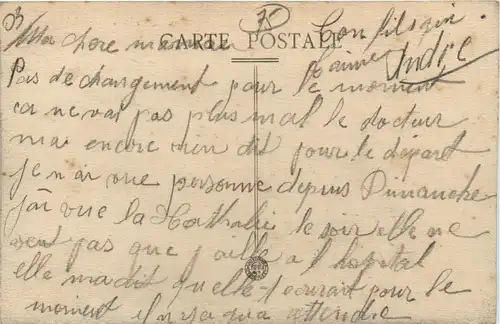 3
75
Ma chere maman
CARTE POSTALE
Ton fils qui
t'aime
André
Pas de changement pour le moment
ca ne vas pas plus mal le docteur
ma encore rien dit pour le depart
je n'ai vue personne depuis Dimanche
j'ai vue la Nathalie le soir elle ne
veut pas que j'aille a l'hopital
elle ma dit quelle pour le
moment il n'y a qua attendre